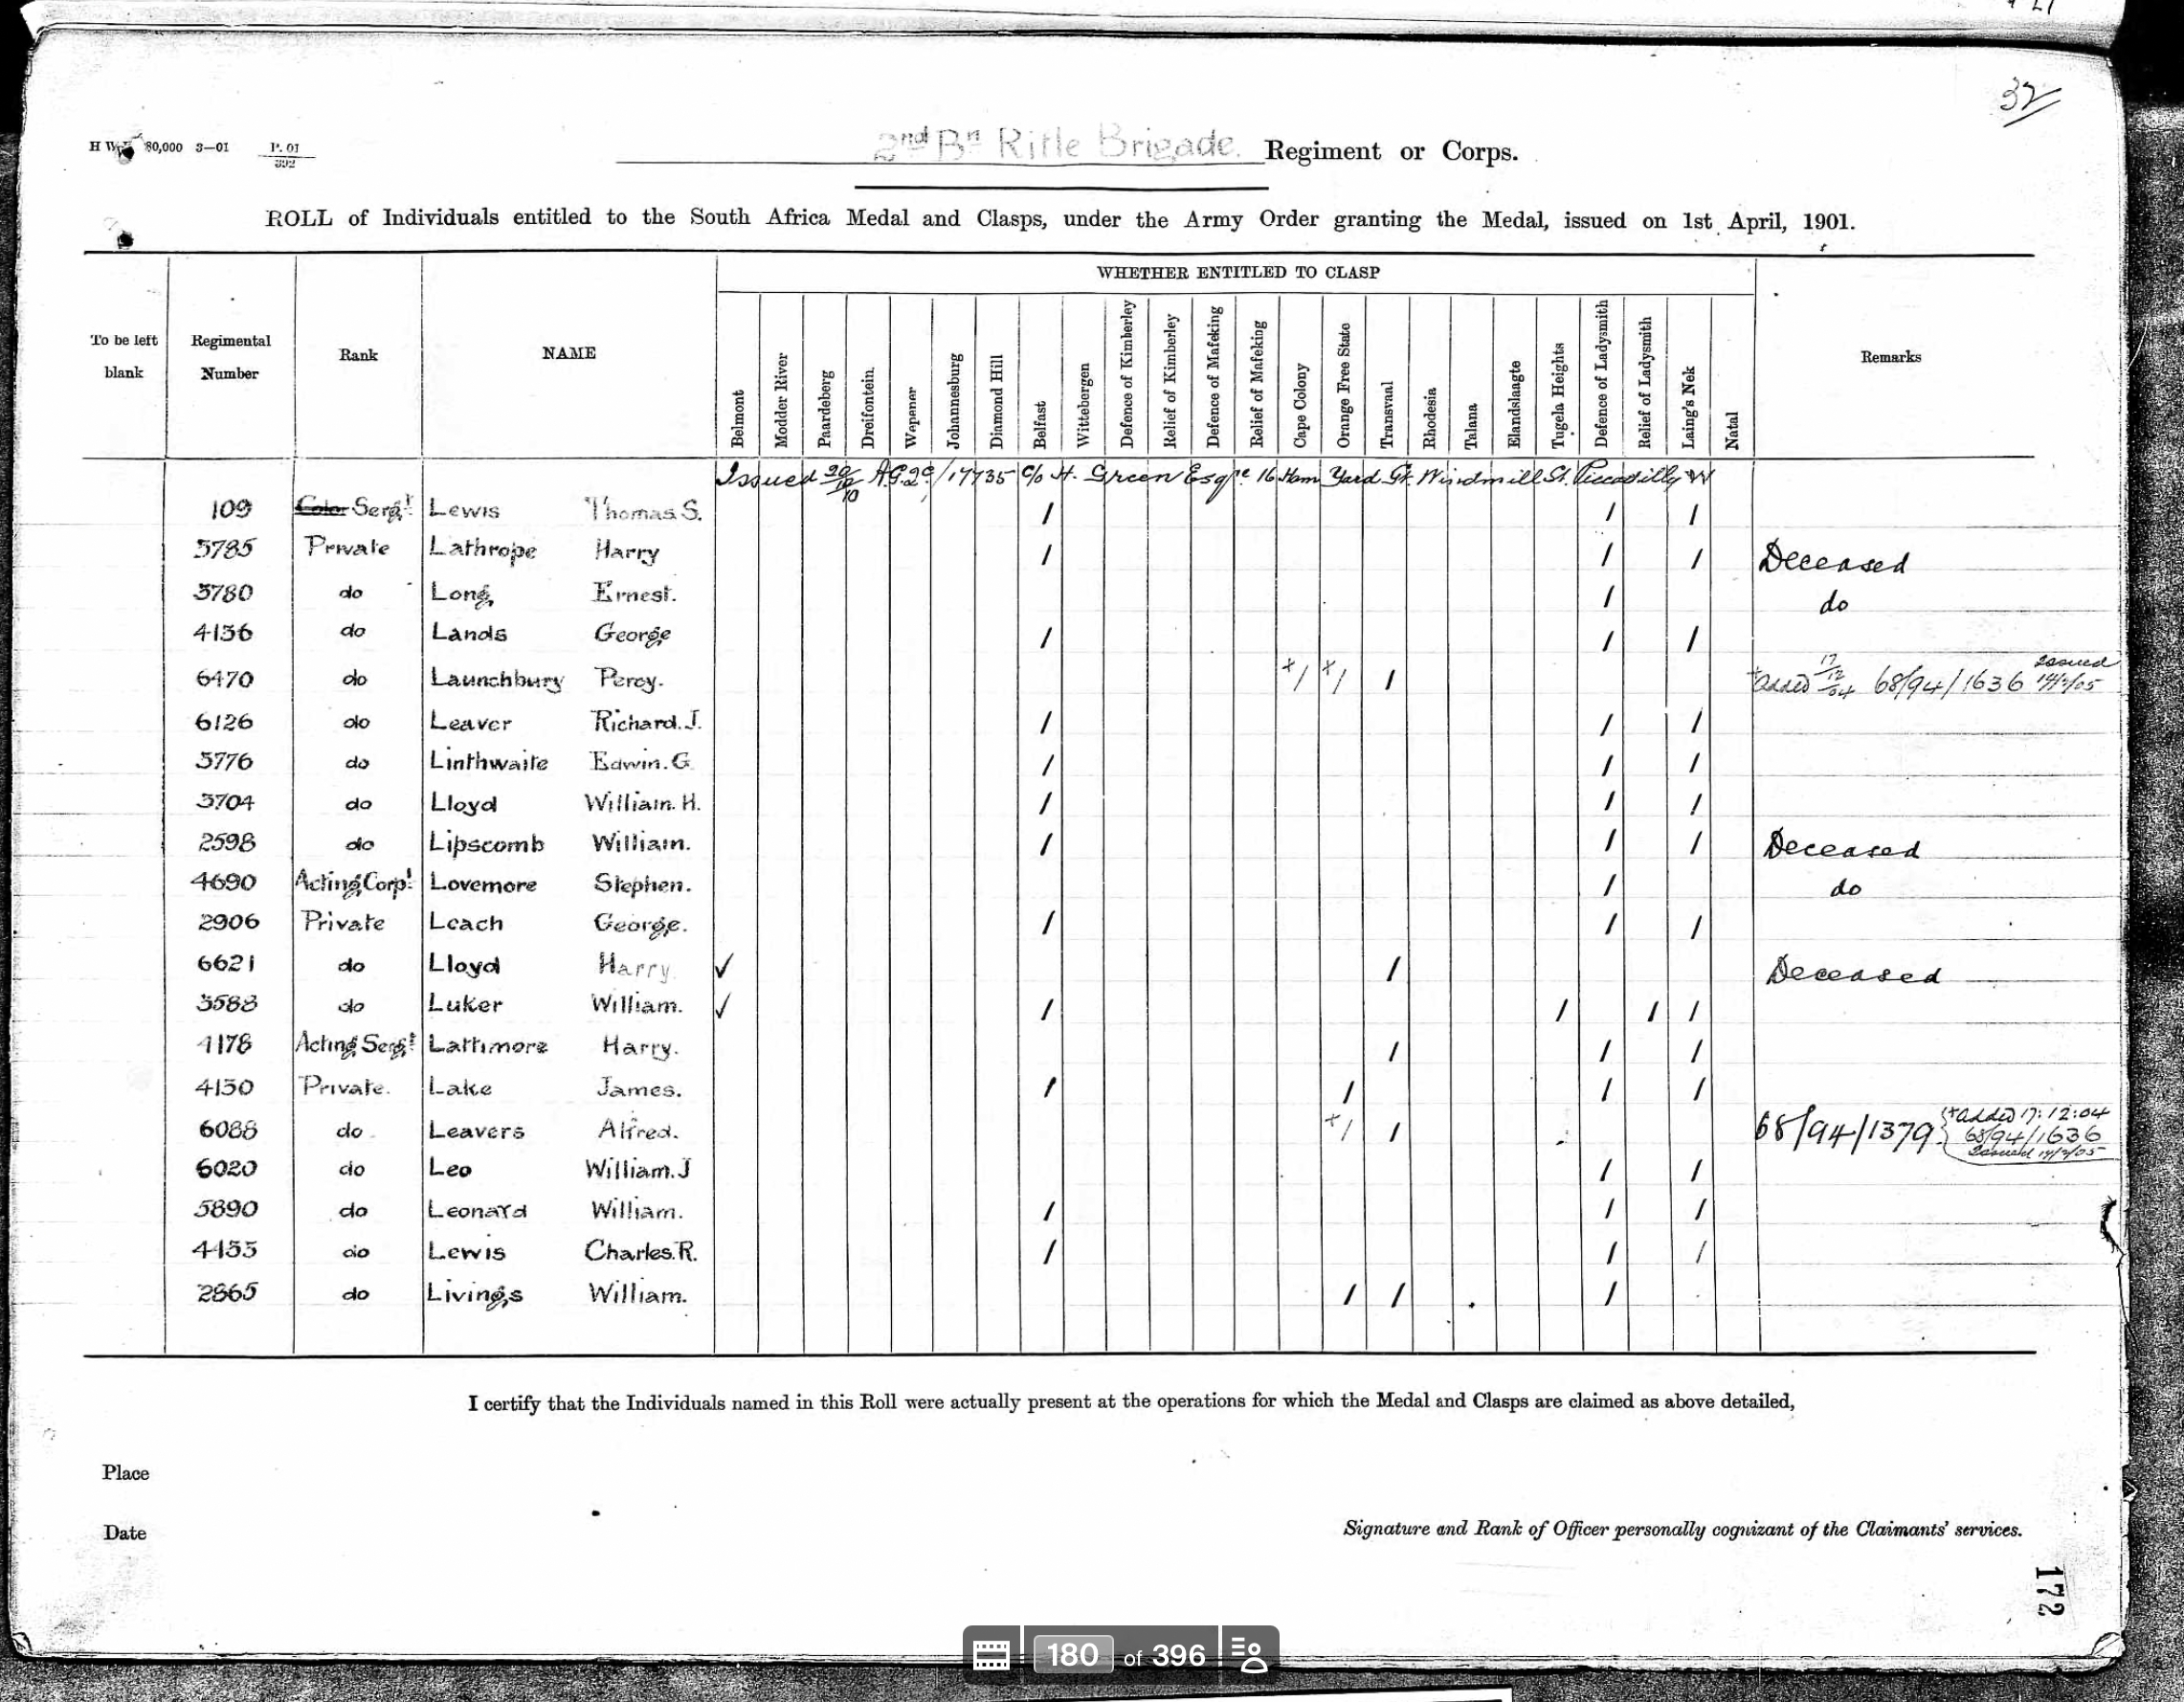 32
H W 80,000 3—01 P. 01
392
2nd Bn Rifle Brigade. Regiment or Corps.
ROLL of Individuals entitled to the South Africa Medal and Clasps, under the Army Order granting the Medal, issued on 1st April, 1901.
WHETHER ENTITLED TO CLASP
To be left blank Regimental Number Rank NAME Belmont Modder River Paardeberg Dreifontein Wepener Johannesburg Diamond Hill Belfast Wittebergen Defence of Kimberley Relief of Kimberley Defence of Mafeking Relief of Mafeking Cape Colony Orange Free State Transvaal Rhodesia Talana Elandslaagte Tugela Heights Defence of Ladysmith Relief of Ladysmith Laing's Nek Natal Remarks
Issued 20/10/10 A.G.2c/17735 c/o H. Green Esqre 16 Ham Yard Gt. Windmill St. Piccadilly W
109 Color Sergt. Lewis Thomas S. / / /
3785 Private Lathrope Harry / / / Deceased
3780 do Long Ernest. / do
4136 do Lands George / / /
6470 do Launchbury Percy. +/ +/ / +added 17/12/04 68/94/1636 issued
6126 do Leaver Richard. J. / / /
3776 do Linthwaite Edwin. G / / /
3704 do Lloyd William. H. / / /
2598 do Lipscomb William. / / / Deceased
4690 Acting Corpl. Lovemore Stephen. / do
2906 Private Leach George. / / /
6621 do Lloyd Harry. ✓ / Deceased
3588 do Luker William. ✓ / / / /
4178 Acting Sergt Lattimore Harry. / / /
4130 Private. Lake James. / / / /
6088 do Leavers Alfred. +/ / 68/94/1379 +added 17:12:04
68/94/1636
issued
6020 do Leo William. J / /
5890 do Leonard William. / / /
4133 do Lewis Charles. R. / / /
2865 do Livings William. / / /
I certify that the Individuals named in this Roll were actually present at the operations for which the Medal and Clasps are claimed as above detailed,
Place
Date
Signature and Rank of Officer personally cognizant of the Claimants' services.
172
180 of 396